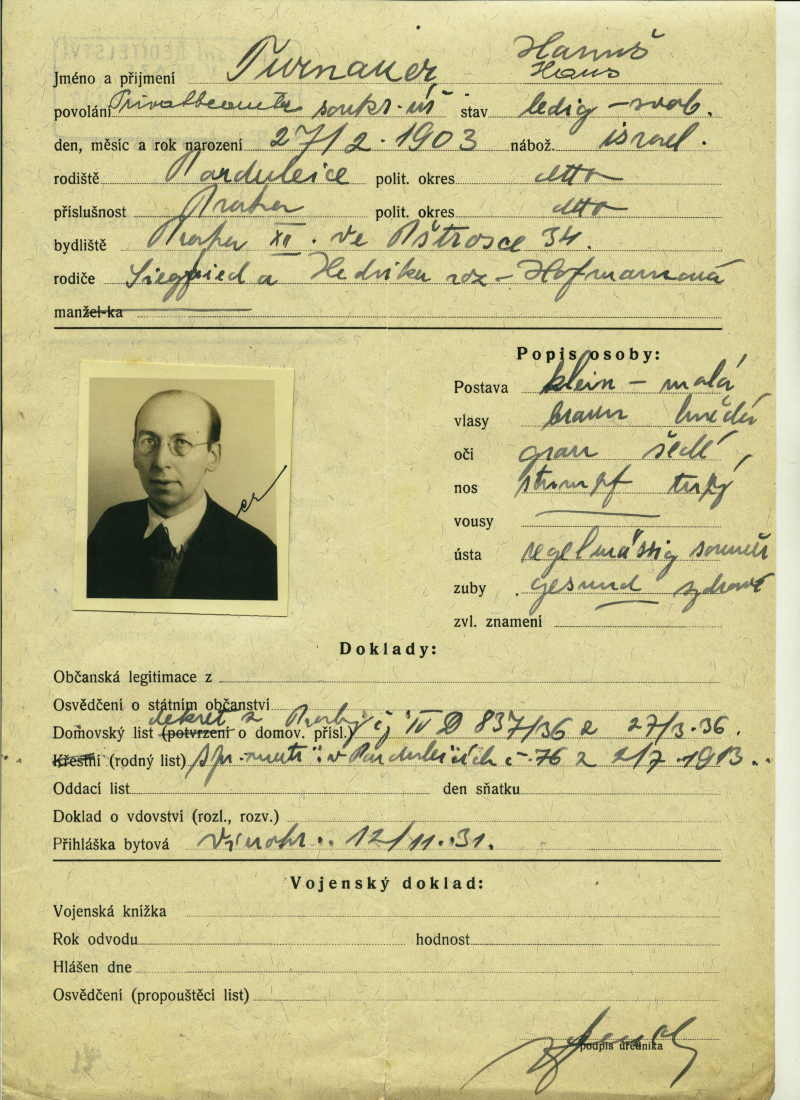 Jméno a přijmení Turnauer Hanuš
Hans
povolání Privatbeamter soukr. úř stav ledig – svob.
den, měsíc a rok narození 27/2. 1903 nábož. israel.
rodiště Pardubice polit. okres detto
příslušnost Praha polit. okres detto
bydliště Praha XII. ve Pštrosce 34.
rodiče Siegfried a Hedvika roz – Hofmannová
manžel-ka
Popis osoby:
Postava klein – malá
vlasy braun hnědá
oči grau šedé
nos stumpf tupý
vousy
ústa regelmässig souměr
zuby gesund zdravé
zvl. znamení
er
Doklady:
Občanská legitimace z
Osvědčení o státním občanství
dekret z Prahy
Domovský list (potvrzení o domov. přísl.) čj IV D 837/36 z 27/3.36.
Křestní (rodný list) v Pardubicích č. 76 z 1913.
Oddací list den sňatku
Doklad o vdovství (rozl., rozv.)
Přihláška bytová Vinohr. 12/11.31.
Vojenský doklad:
Vojenská knížka
Rok odvodu hodnost
Hlášen dne
Osvědčení (propouštěcí list)
podpis úředníka